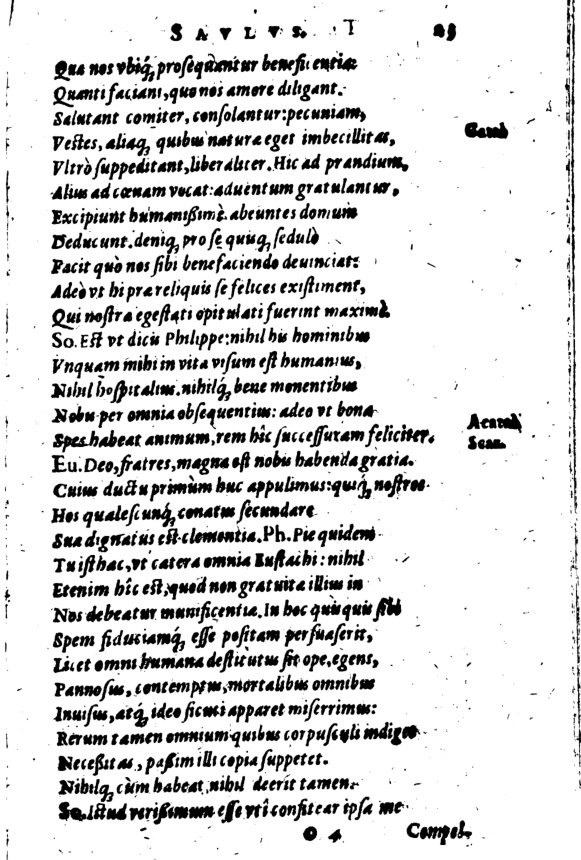 SAVLVS. I 25
Qua nos vbiq́; prosequantur beneficientia:
Quanti faciant, quo nos amore diligant.
Salutant comiter, consolantur: pecuniam,
Vestes, aliaq́; quibus natura eget imbecillitas,
Vltrò suppeditant, liberaliter. Hic ad prandium,
Alius ad cœnam vocat: aduentum gratulantur,
Excipiunt humanißimè. abeuntes domum
Deducunt. deniq́; pro se quisq́; sedulò
Facit quò nos sibi benefaciendo deuinciat:
Adeò vt hi præ reliquis se felices existiment,
Qui nostra egestati opitulati fuerint maximè.
So. Est vt dicis Philippe: nihil his hominibus
Vnquam mihi in vita visum est humanius,
Nihil hospitalius. nihilq́; bene monentibus
Nobis per omnia obsequentius: adeo vt bona
Spes habeat animum, rem hîc successuram feliciter.
Eu. Deo, fratres, magna est nobis habenda gratia.
Cuius ductu primùm huc appulimus: quiq́; nostros
Hos qualescunq́; conatus secundare
Sua dignatus est clementia. Ph. Pie quidem
Tu isthac, vt cætera omnia Eustachi: nihil
Etenim hîc est, quod non gratuita illius in
Nos debeatur munificentia. In hoc quisquis sibi
Spem fiduciamq́; esse positam persuaserit,
Licet omni humana destitutus sit ope, egens,
Pannosus, contemptus, mortalibus omnibus
Inuisus, atq́; ideo sicuti apparet miserrimus:
Rerum tamen omnium quibus corpusculi indiget
Neceßitas, paßim illi copia suppetet.
Nihilq́; cùm habeat, nihil deerit tamen.
So. Istud verißimum esse vti confitear ipsa me
O 4 Compel-